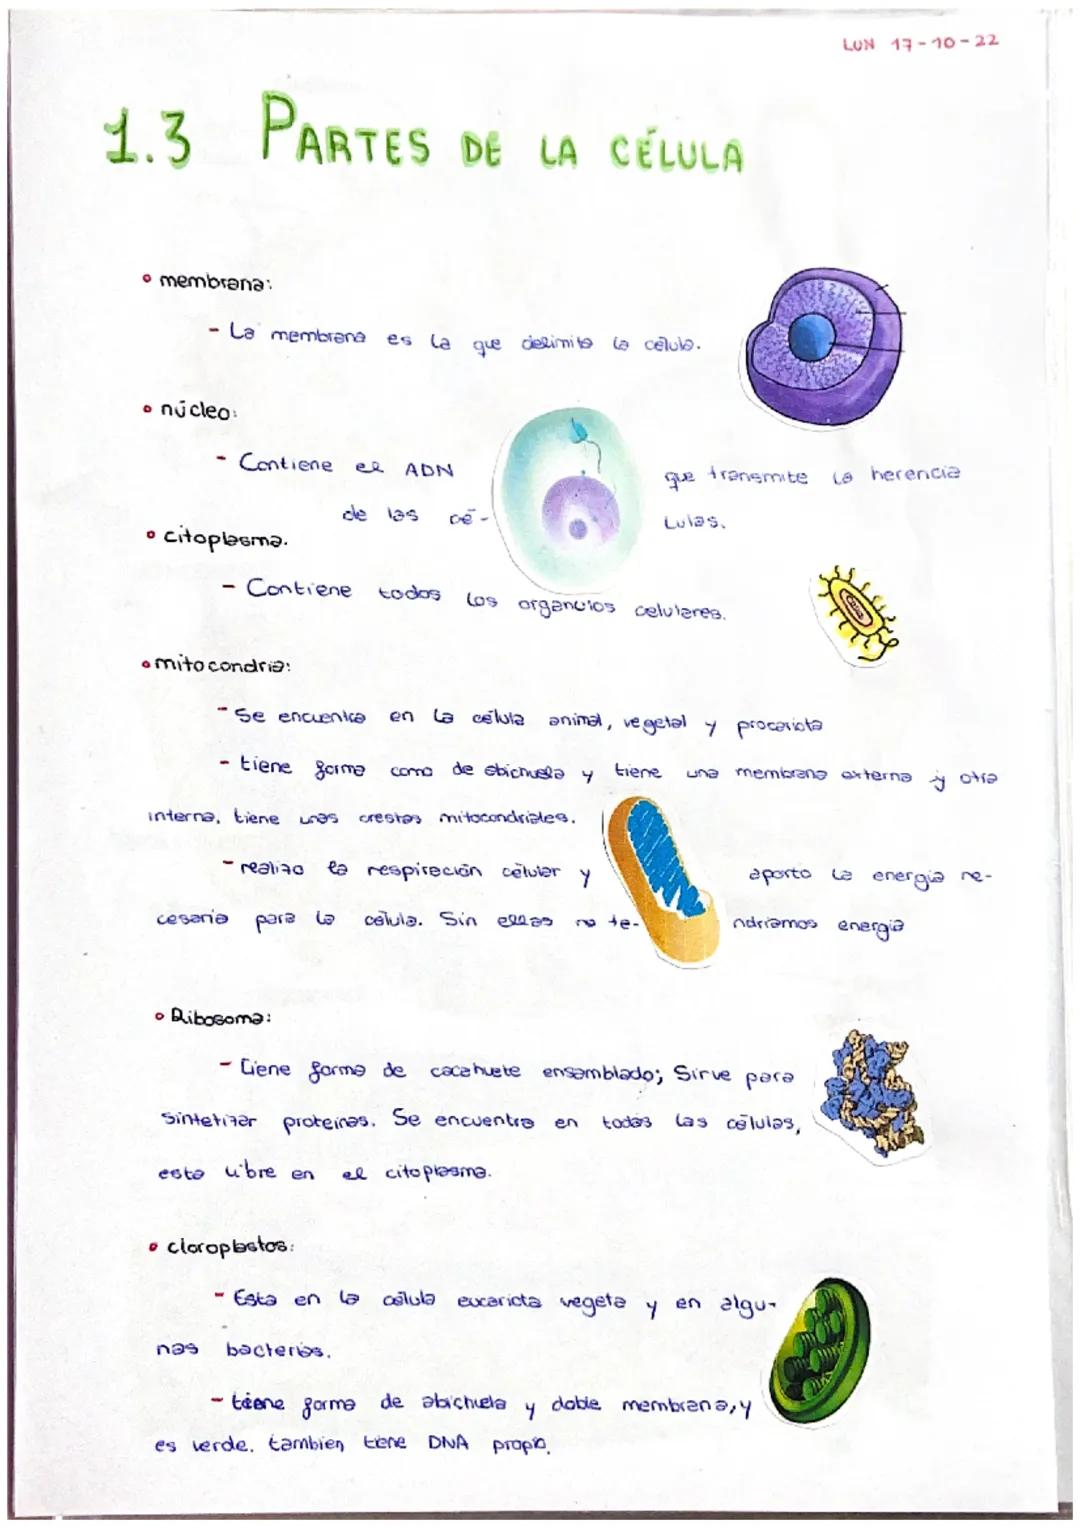 LUN 17-10-22
1.3 PARTES DE LA CÉLULA
membrana:
- La membrana es la que delimita la célula.
núcleo:
- Contiene el ADN que transmite la herencia
de las cé- lulas.
citoplasma.
- Contiene todos los organulos celulares.
mitocondria:
- Se encuentra en la célula animal, vegetal y procariota
- tiene forma como de abichuela y tiene una membrana externa y otra
interna. tiene unas crestas mitocondriales.
- realiza la respiración célular y aporta la energía ne-
cesaria para la célula. Sin ellas no te- ndriamos energía
Ribosoma:
- Tiene forma de cacahuete ensamblado; Sirve para
sintetizar proteinas. Se encuentra en todas las células,
esta libre en el citoplasma.
cloroplastos:
- Esta en la célula eucariota vegeta y en algu-
nas bacterias.
- tiene forma de abichuela y doble membrana, y
es verde. tambien tiene DNA propio.